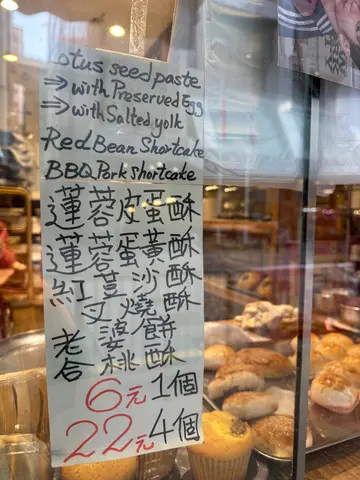 Lotus seed paste
⇒ with Preserved Egg
⇒ with Salted yolk
Red Bean Shortcake
BBQ Pork shortcake
蓮蓉皮蛋酥
蓮蓉蛋黃酥
紅荳沙酥
叉燒酥
老婆餅
合桃酥
6元1個
22元4個